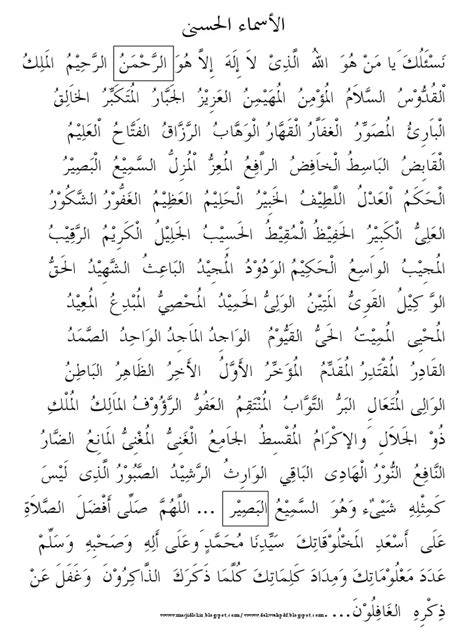 الأسماء الحسنى
نَسْئَلُكَ يا مَنْ هُوَ اللهُ الَّذِىْ لاَ إِلَهَ إِلاَّ هُوَ الرَّحْمَنُ الرَّحِيْمُ المَلِكُ
الْقُدُّوْسُ السَّلاَمُ المُؤْمِنُ المُهَيْمِنُ العَزِيْزُ الجَبَّارُ المُتَكَبِّرُ الخَالِقُ
البَارِئُ المُصَوِّرُ الغَفَّارُ القَهَّارُ الْوَهَّابُ الرَّزَّاقُ الفَتَّاحُ الْعَلِيْمُ
الْقَابِضُ البَاسِطُ الْخَافِضُ الرَّافِعُ المُعِزُّ الْمُزِلُّ السَّمِيْعُ الْبَصِيْرُ
الْحَكَمُ الْعَدْلُ اللَّطِيْفُ الخَبِيْرُ الْحَلِيْمُ العَظِيْمُ الغَفُّوْرُ الشَّكُوْرُ
العَلِىُّ الْكَبِيْرُ الحَفِيْظُ الْمُقِيْطُ الحَسِيْبُ الجَلِيْلُ الْكَرِيْمُ الرَّقِيْبُ
المُجِيْبُ الوَاسِعُ الْحَكِيْمُ الوَدُوْدُ المُجِيْدُ البَاعِثُ الشَّهِيْدُ الحَقُّ
الوَكِيْلُ القَوِىُّ الْمَتِيْنُ الوَلِىُّ الْحَمِيْدُ الْمُحْصِيُّ الْمُبْدِعُ المُعِيْدُ
المُحْيِى المُمِيْتُ الحَىُّ القَيُّوْمُ الوَاجِدُ المَاجِدُ الوَاحِدُ الصَّمَدُ
القَادِرُ المُقْتَدِرُ المُقَدِّمُ المُؤَخِّرُ الأَوَّلُ الأَخِرُ الظَّاهِرُ البَاطِنُ
الوَالِى المُتَعَالِ البَرُّ التَّوَّابُ المُنْتَقِمُ العَفُوُّ الرَّؤُوْفُ المَالِكُ المُلْكِ
ذُوْ الْجَلاَلِ وَالإِكْرَامُ المُقْسِطُ الجَامِعُ الغَنِىُّ المُغْنِىُّ المَانِعُ الضَّارُ
النَّافِعُ النُّوْرُ الْهَادِى البَاقِي الوَارِثُ الرَّشِيْدُ الصَّبُوْرُ الَّذِى لَيْسَ
كَمِثْلِهِ شَيْىءٌ وَهُوَ السَّمِيْعُ البَصِيْر ... اللَّهُمَّ صَلِّى أَفْضَلَ الصَّلاَةِ
عَلَى أَسْعَدِ المَخْلُوْقَاتِكَ سَيِّدِنَا مُحَمَّدٍ وَعَلَى أَلِهِ وَصَحْبِهِ وَسَلِّمْ
عَدَدَ مَعْلُوْمَاتِكَ وَمِدَادَ كَلِمَاتِكَ كُلَّمَا ذَكَرَكَ الذَّاكِرُوْنَ وَغَفَلَ عَنْ
ذِكْرِهِ الغَافِلُوْنَ....